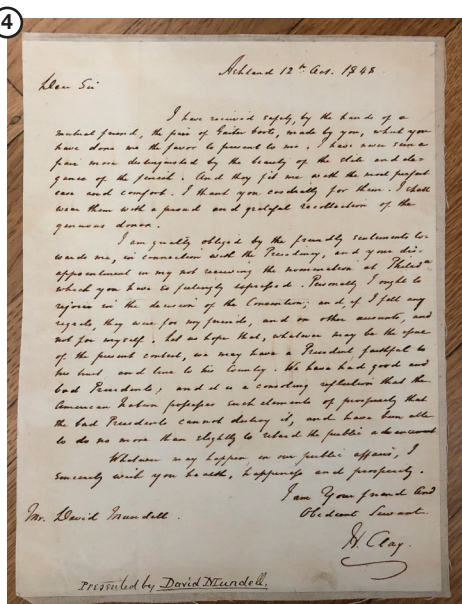 4
Ashland 12th Oct. 1848
Dear Sir
I have received safely, by the hands of a
mutual friend, the pair of Gaiter boots, made by you, which you
have done me the favor to present to me. I have never seen a
pair more distinguished by the beauty of the stitch and ele-
gance of the finish. And they fit me with the most perfect
ease and comfort. I thank you cordially for them. I shall
wear them with a proud and grateful recollection of the
generous donor.
I am greatly obliged by the friendly sentiments to-
wards me, in connection with the Presidency, and your dis-
appointment in my not receiving the nomination at Philada
which you have so feelingly expressed. Personally I ought to
rejoice in the decision of the Convention; and if I felt any
regrets, they were for my friends, and on other accounts, and
not for myself. Let us hope that, whatever may be the issue
of the present contest, we may have a President faithful to
his trust, and true to his Country. We have had good and
bad Presidents; and it is a consoling reflection that the
American Nation possesses such elements of prosperity that
the bad Presidents cannot destroy it, and have been able
to do no more than slightly to retard the public advancement
Whatever may happen in our public affairs, I
sincerely wish you health, happiness and prosperity.
I am Your friend and
Obedient Servant
Mr. David Mundell.
H. Clay.
Presented by David Mundell.